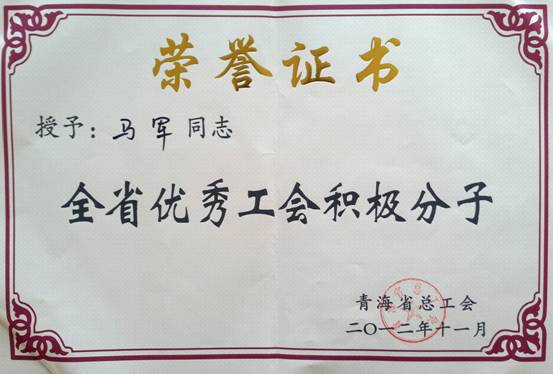 荣誉证书
授予：马军同志
全省优秀工会积极分子
青海省总工会
二〇一二年十一月